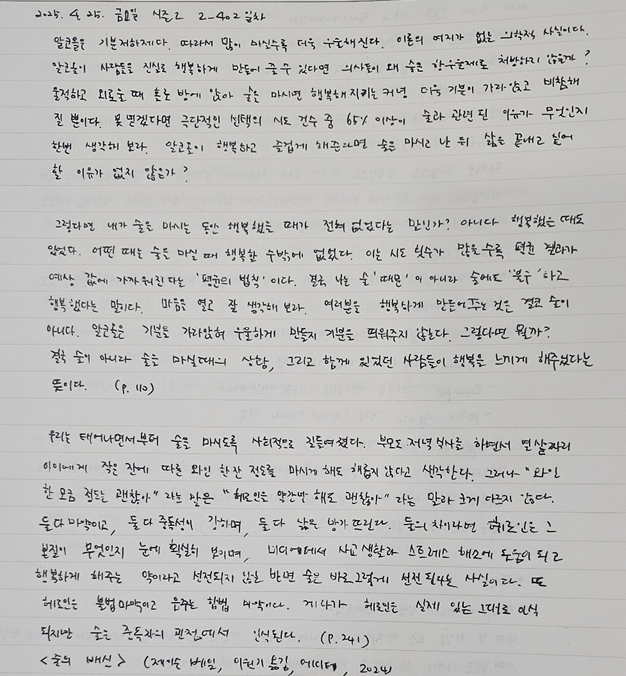 2025. 4. 25. 금요일 시즌2 2-402일차
알코올은 기분저하제다. 따라서 많이 마실수록 더욱 우울해진다. 이론의 여지가 없는 의학적 사실이다.
알코올이 사람들을 진실로 행복하게 만들어 줄 수 있다면 의사들이 왜 술을 항우울제로 처방하지 않을까?
울적하고 외로울 때 혼자 방에 앉아 술을 마시면 행복해지기는커녕 더욱 기분이 가라앉고 비참해
질 뿐이다. 못 믿겠다면 극단적인 선택의 시도 건수 중 65% 이상이 술과 관련된 이유가 무엇인지
한번 생각해 보라. 알코올이 행복하고 즐겁게 해준다면 술을 마시고 난 뒤 삶을 끝내고 싶어
할 이유가 없지 않은가?
그렇다면 내가 술을 마시는 동안 행복했을 때가 전혀 없었다는 말인가? 아니다 행복했을 때도
있었다. 어떤 때는 술을 마실 때 행복할 수밖에 없었다. 이는 시도 횟수가 많을수록 평균 결과가
예상 값에 가까워진다는 '평균의 법칙'이다. 결국 나는 술 '때문'이 아니라 술에도 '불구'하고
행복했다는 말이다. 마음을 열고 잘 생각해 보라. 여러분을 행복하게 만들어주는 것은 결코 술이
아니다. 알코올은 기분을 가라앉혀 우울하게 만들지 기분을 띄워주지 않는다. 그렇다면 뭘까?
결국 술이 아니라 술을 마실때의 상황, 그리고 함께 있었던 사람들이 행복을 느끼게 해주었다는
뜻이다. (p. 110)
우리는 태어나면서부터 술을 마시도록 사회적으로 길들여졌다. 부모도 저녁식사를 하면서 열살짜리
아이에게 작은 잔에 따른 와인 한잔 정도를 마시게 해도 해롭지 않다고 생각한다. 그러나 "와인
한 모금 정도는 괜찮아"라는 말은 "헤로인은 약간만 해도 괜찮아"라는 말과 크게 다르지 않다.
둘 다 마약이고, 둘 다 중독성이 강하며, 둘 다 삶을 망가뜨린다. 둘의 차이라면 헤로인은 그
본질이 무엇인지 눈에 확실히 보이며, 미디어에서 사교생활과 스트레스 해소에 도움이 되고
행복하게 해주는 약이라고 선전되지 않는 반면 술은 바로 그렇게 선전된다는 사실이다. 또
헤로인은 불법마약이고 음주는 합법 마약이다. 게다가 헤로인은 실제 있는 그대로 인식
되지만 술은 중독자의 관점에서 인식된다. (p. 241)
<술의 배신> (제이슨 베일, 이원기 옮김, 에디터, 2024)